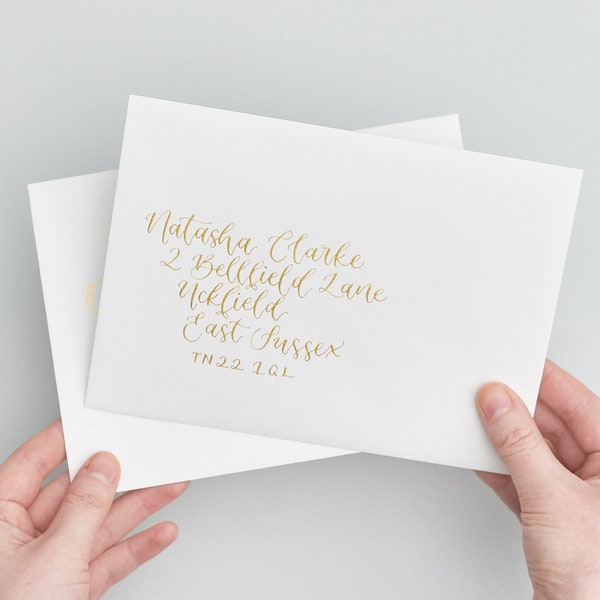 Natasha Clarke
2 Bellfield Lane
Uckfield
East Sussex
TN22 1QL